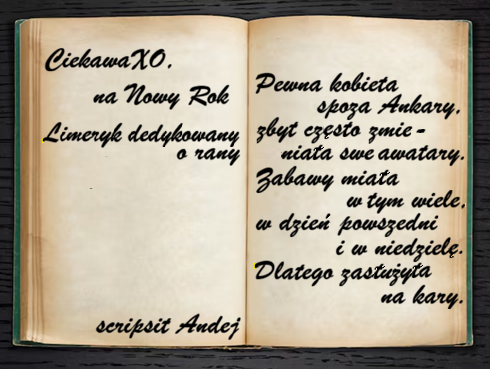 CiekawaXO,
na Nowy Rok
Limeryk dedykowany
o rany
scripsit Andej
Pewna kobieta
spoza Ankary,
zbyt często zmie -
niała swe awatary.
Zabawy miała
w tym wiele,
w dzień powszedni
i w niedzielę.
Dlatego zasłużyła
na kary.